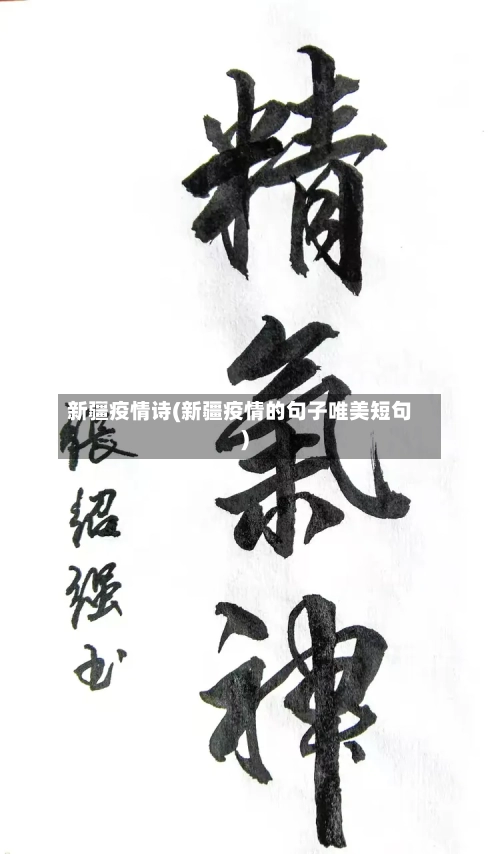 精
氣
神
新疆疫情诗(新疆疫情的句子唯美短句
)
張紹强书